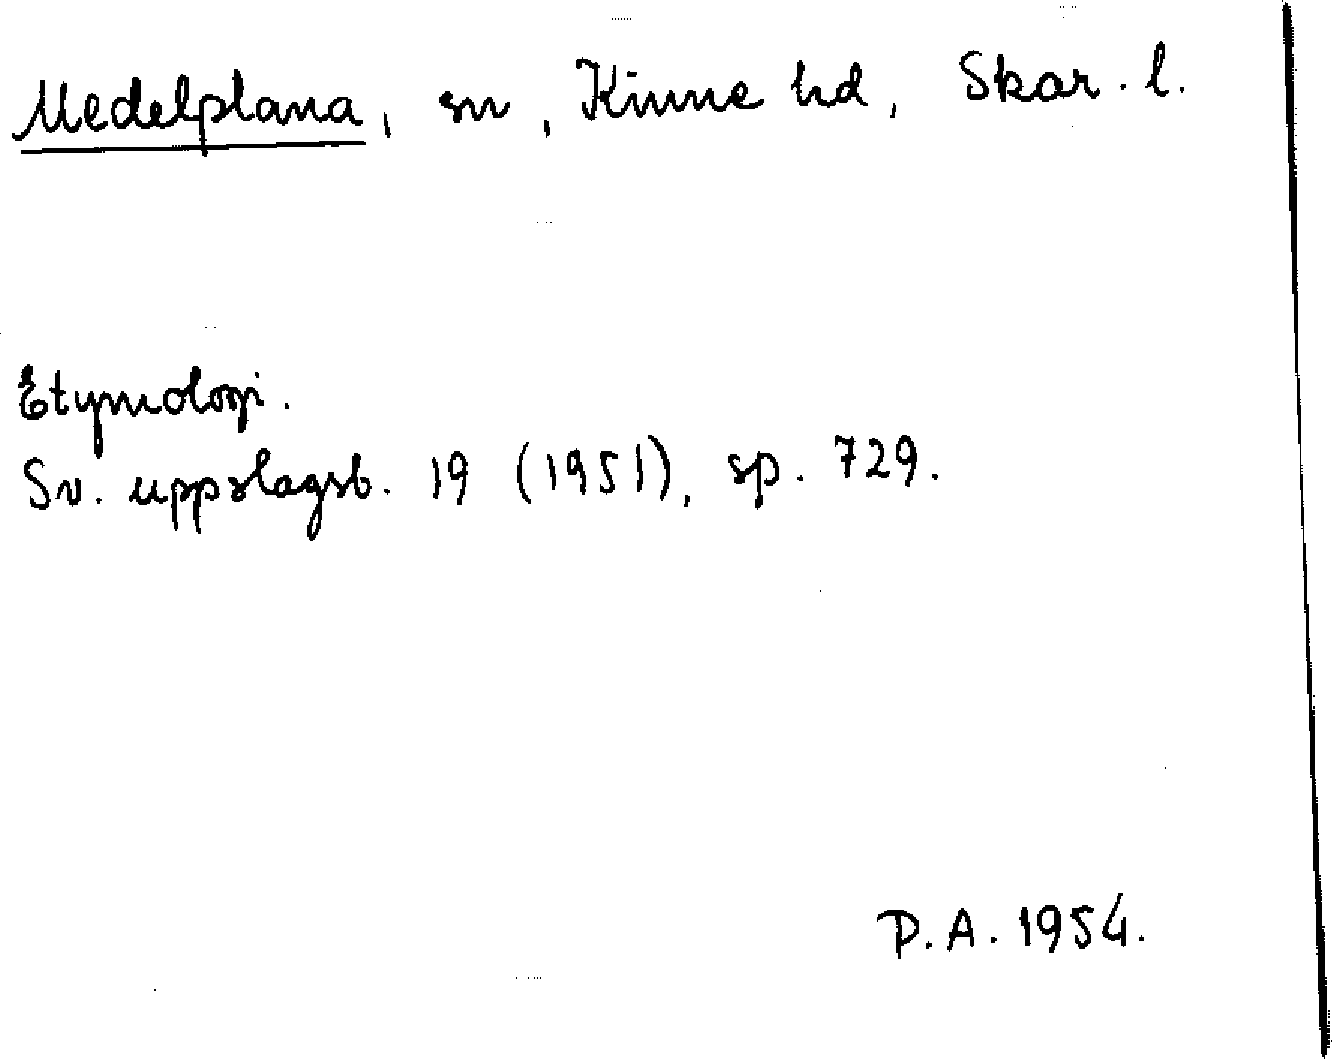 Medelplana, sn, Kinne hd, Skar. l.
Etymologi.
Sv. uppslagsb. 19 (1951), sp. 729.
P. A. 1954.